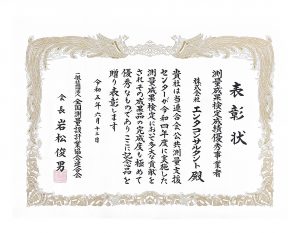 表彰状
測量成果検定成績優秀事業者
株式会社 エンタコンサルタント 殿
貴社は当連合会公共測量支援
センターが令和四年度に実施した
測量成果検定において多大な貢献を
されその成果品の完成度も極めて
優秀なものでありここに記念品を
贈り表彰します
令和五年六月十三日
一般社団法人 全国測量設計業協会連合会
会長 岩松俊男